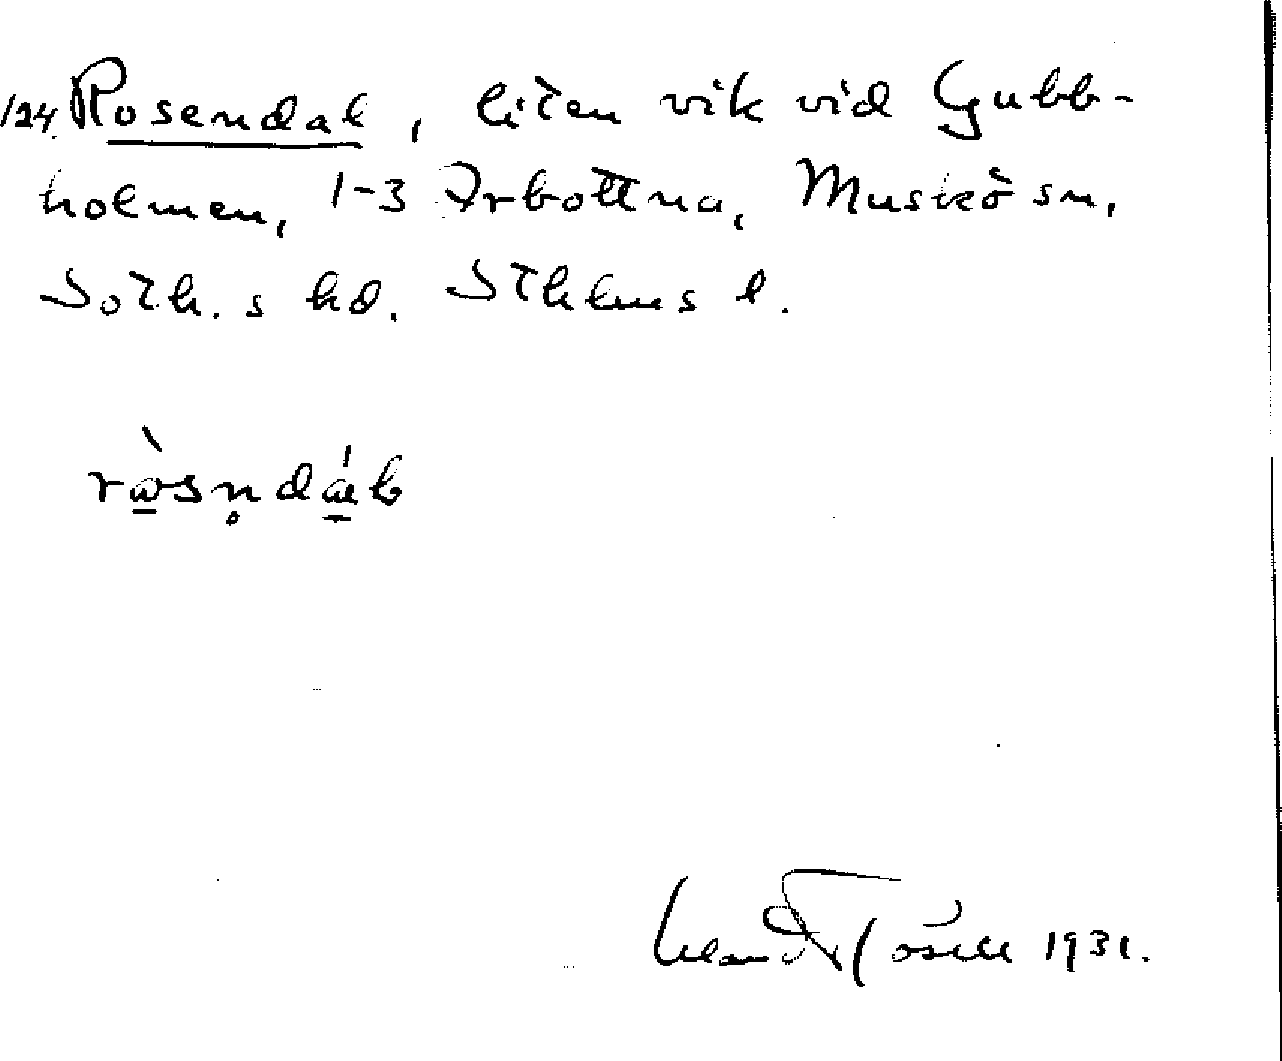 124. Rosendal, liten vik vid Gubb-
holmen, 1-3 Arbottna, Muskö sn,
Soth. s hd. Sthlms l.
1931.